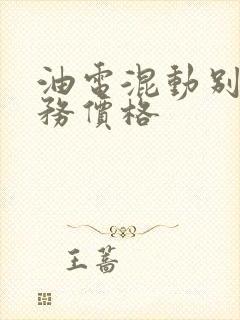 油電混動別
務價格
王薔